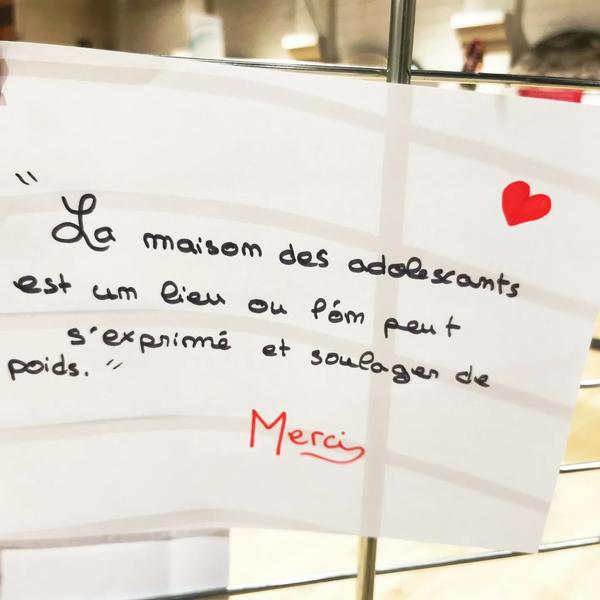 " La maison des adolescants
est un lieu ou l'ôn peut
s'exprimé et soulager de
poids. "
Merci